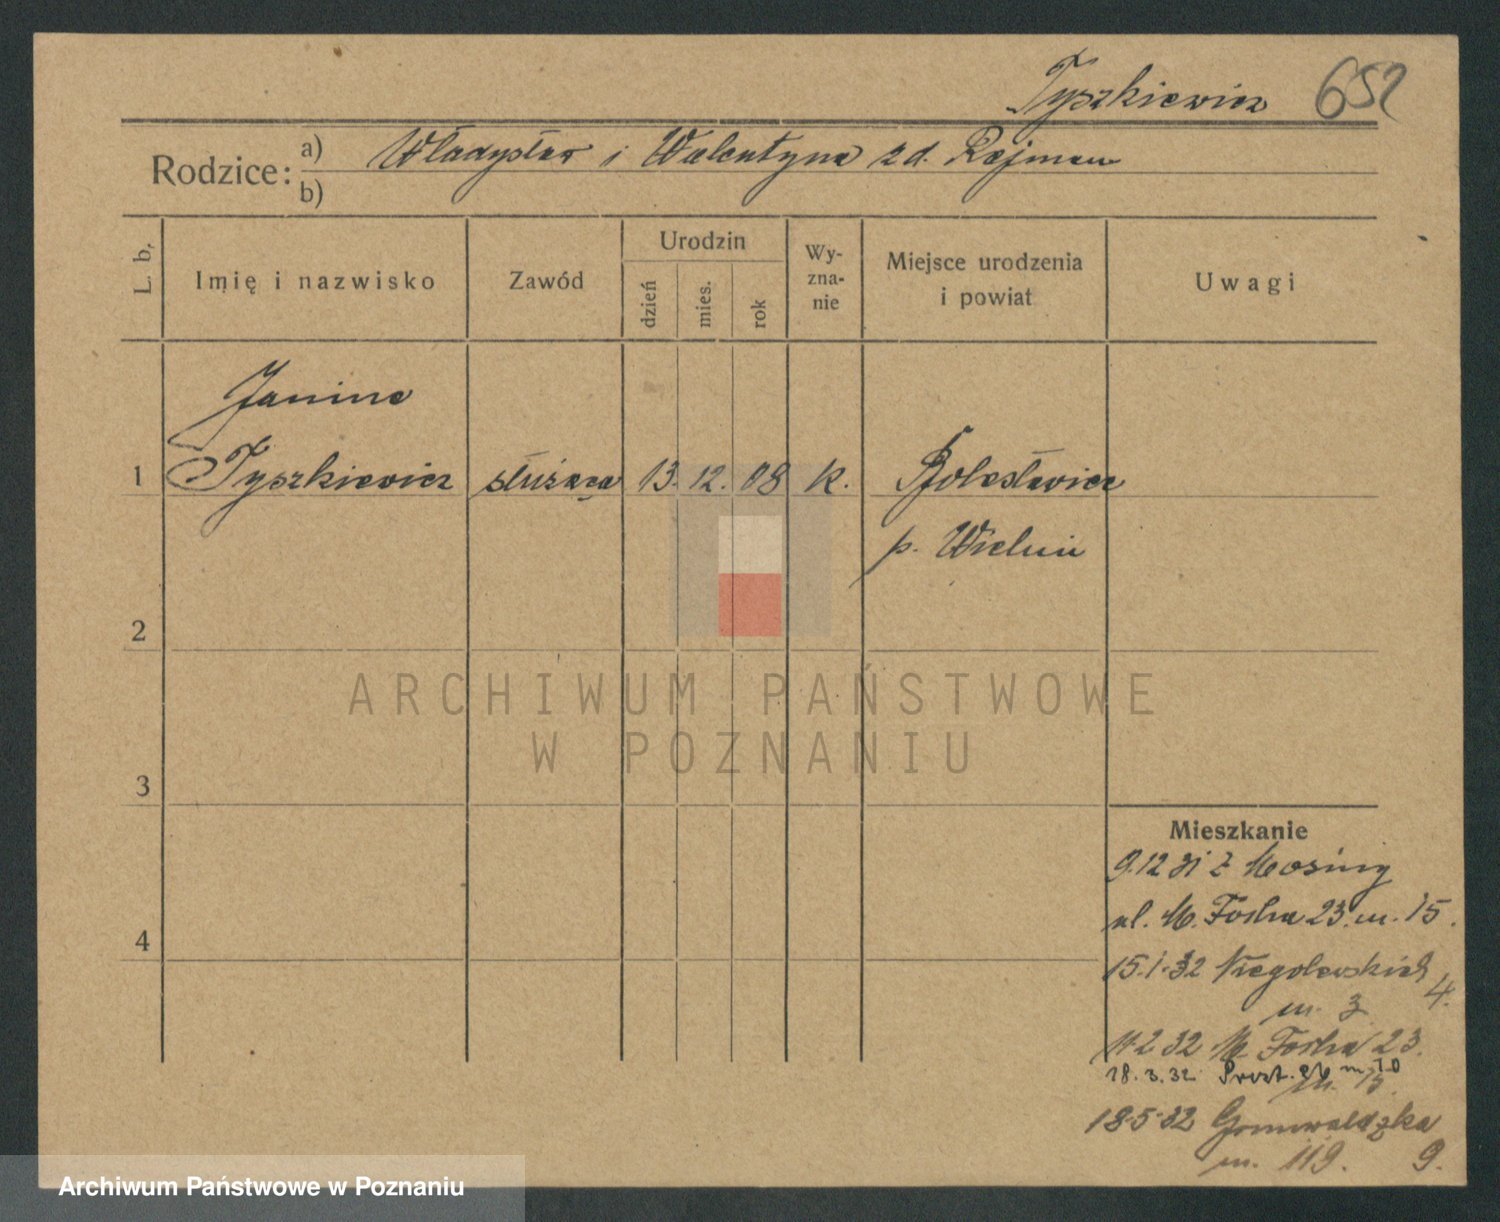 Tyszkiewicz 652
Rodzice: a) Władysław i Walentyna z d. Rajman
b)
L. b. Imię i nazwisko Zawód Urodzin dzień mies. rok Wy-zna-nie Miejsce urodzenia i powiat Uwagi
Janina
1 Tyszkiewicz służąca 13. 12. 08 k. Bolesławice
p. Wieluń
2
ARCHIWUM PAŃSTWOWE
W POZNANIU
3
Mieszkanie
9.12 31 z Mosiny
ul. M. Focha 23. m. 15.
4
15.1.32 Niegolewskich 4.
m. 3
11.2 32 M Focha 23.
m. 15.
18.3.32 m. 10
18.5.32 Grunwaldzka
m. 119. 9.
Archiwum Państwowe w Poznaniu